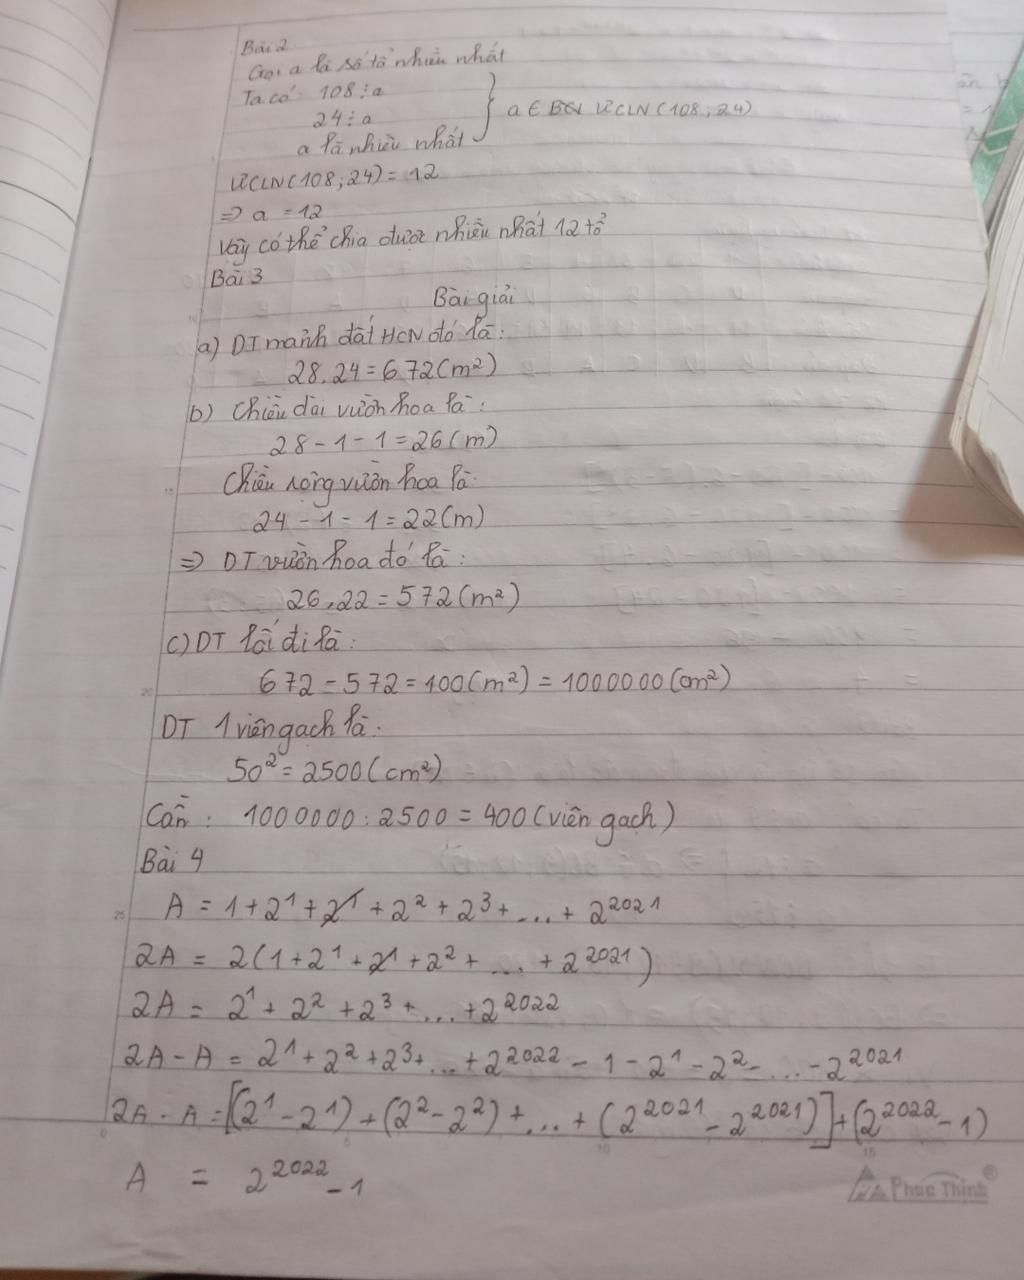 Bài 2
Gọi a là số tổ nhiều nhất
Ta có: 108 ⋮ a
24 ⋮ a
a là nhiều nhất
} a ∈ ƯCLN (108 ; 24)
ƯCLN (108 ; 24) = 12
=> a = 12
Vậy có thể chia được nhiều nhất 12 tổ
Bài 3
Bài giải
a) DT mảnh đất HCN đó là:
28.24 = 672 (m²)
b) Chiều dài vườn hoa là:
28 - 1 - 1 = 26 (m)
Chiều rộng vườn hoa là:
24 - 1 - 1 = 22 (m)
=> DT vườn hoa đó là:
26.22 = 572 (m²)
c) DT lối đi là:
672 - 572 = 100 (m²) = 1000000 (cm²)
DT 1 viên gạch là:
50² = 2500 (cm²)
Cần: 1000000 : 2500 = 400 (viên gạch)
Bài 4
A = 1 + 2¹ + 2¹ + 2² + 2³ + ... + 2²⁰²¹
2A = 2(1 + 2¹ + 2¹ + 2² + ... + 2²⁰²¹)
2A = 2¹ + 2² + 2³ + ... + 2²⁰²²
2A - A = 2¹ + 2² + 2³ + ... + 2²⁰²² - 1 - 2¹ - 2² - ... - 2²⁰²¹
2A - A = [(2¹ - 2¹) + (2² - 2²) + ... + (2²⁰²¹ - 2²⁰²¹)] + (2²⁰²² - 1)
A = 2²⁰²² - 1
Phúc Thịnh®